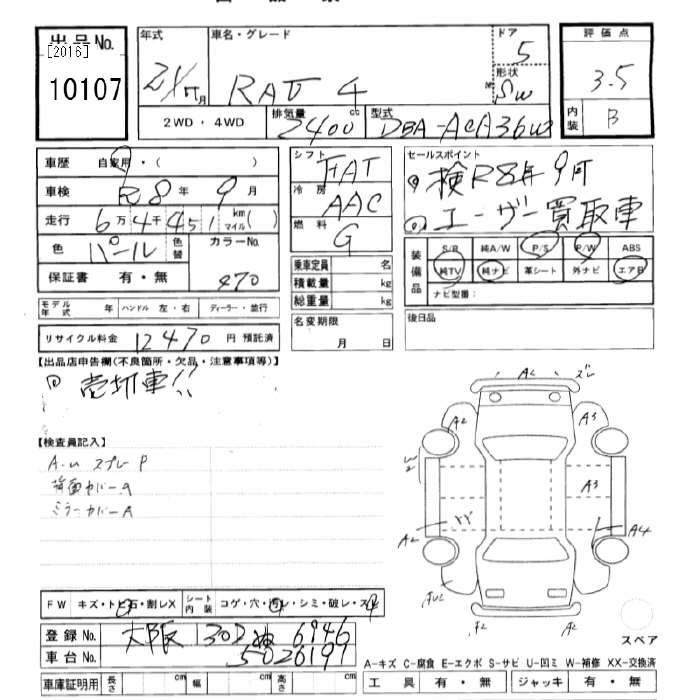 出品No. 年式 車名・グレード ドア 評価点
[2016]
10107 21/ 月 RAV 4 5 3.5
形状 SW
2WD・4WD 排気量 2400 cc 型式 DBA-ACA36W 内装 B
車歴 自家用・( )
シフト FAT
セールスポイント
検R8年9月
ユーザー買取車
車検 R8年 9月
冷房 AAC
走行 6万4千451 km マイル( )
燃料 G
色 パール 色替 カラーNo. 070
装備品 S/R 純A/W P/S P/W ABS
純TV 純ナビ 革シート 外ナビ エアB
ナビ型番:
保証書 有・無
乗車定員 名
積載量 kg
総重量 kg
モデル年式 年 ハンドル 左・右 ディーラー・並行
名変期限 月 日
後日品
リサイクル料金 12470 円 預託済
【出品店申告欄(不良箇所・欠品・注意事項等)】
売切車!!
【検査員記入】
スプレー P
背面カバーA
ミラーカバーA
A2 ズレ
A2 A3
W2 A3
A2 YY A4
AU2
A2 A2
スペア
FW キズ・トビ石・割レX シート内装 コゲ・穴・汚レ・シミ・破レ・スレ
登録No. 大阪 302 ぬ 6946
車台No. 5020199
A-キズ C-腐食 E-エクボ S-サビ U-凹ミ W-補修 XX-交換済
車庫証明用 長さ cm 幅 cm 高さ cm
工具 有・無 ジャッキ 有・無